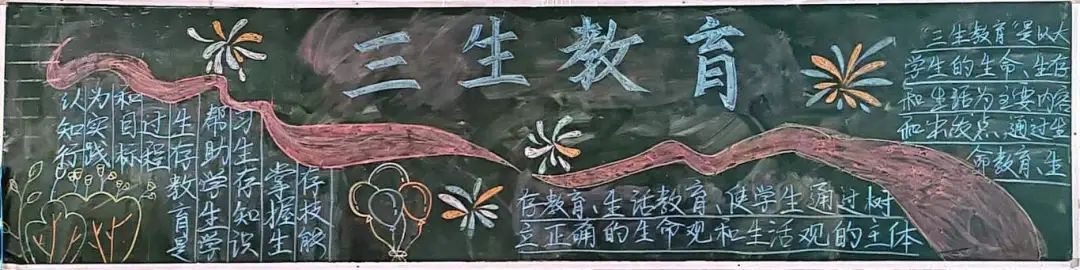 三生教育
“三生教育”是以大
学生的生命、生存
和生活为主要内容
和出发点、通过生
命教育、生
存教育、生活教育、使学生通过树
立正确的生命观和生活观的主体
认知行
为实践
和目标
过程
生存教育是
帮助学生学
习生存知识
掌握生
存技能